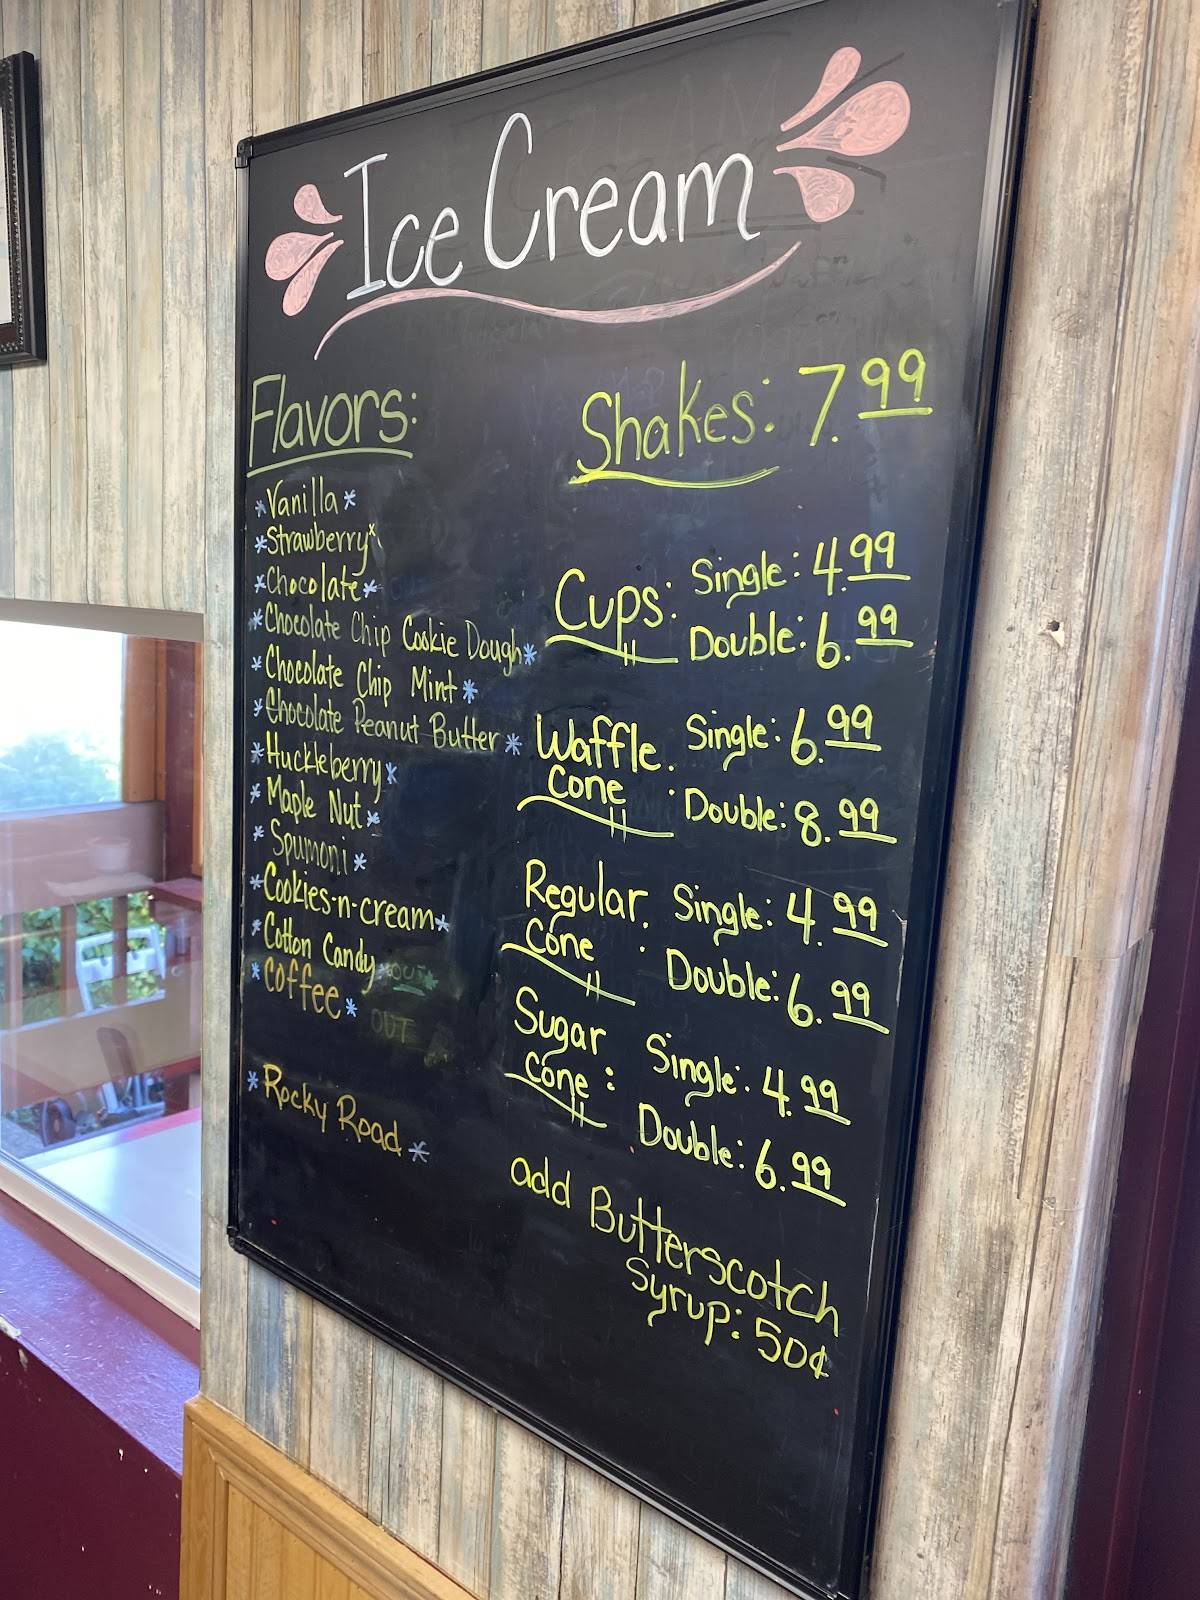 Ice Cream
Flavors:
*Vanilla*
*Strawberry*
*Chocolate*
*Chocolate Chip Cookie Dough*
*Chocolate Chip Mint*
*Chocolate Peanut Butter*
*Huckleberry*
*Maple Nut*
*Spumoni*
*Cookies-n-cream*
*Cotton Candy* OUT
*Coffee* OUT
*Rocky Road*
Shakes: 7.99
Cups: Single: 4.99
Double: 6.99
Waffle Cone: Single: 6.99
Double: 8.99
Regular Cone: Single: 4.99
Double: 6.99
Sugar Cone: Single: 4.99
Double: 6.99
add Butterscotch
Syrup: 50¢